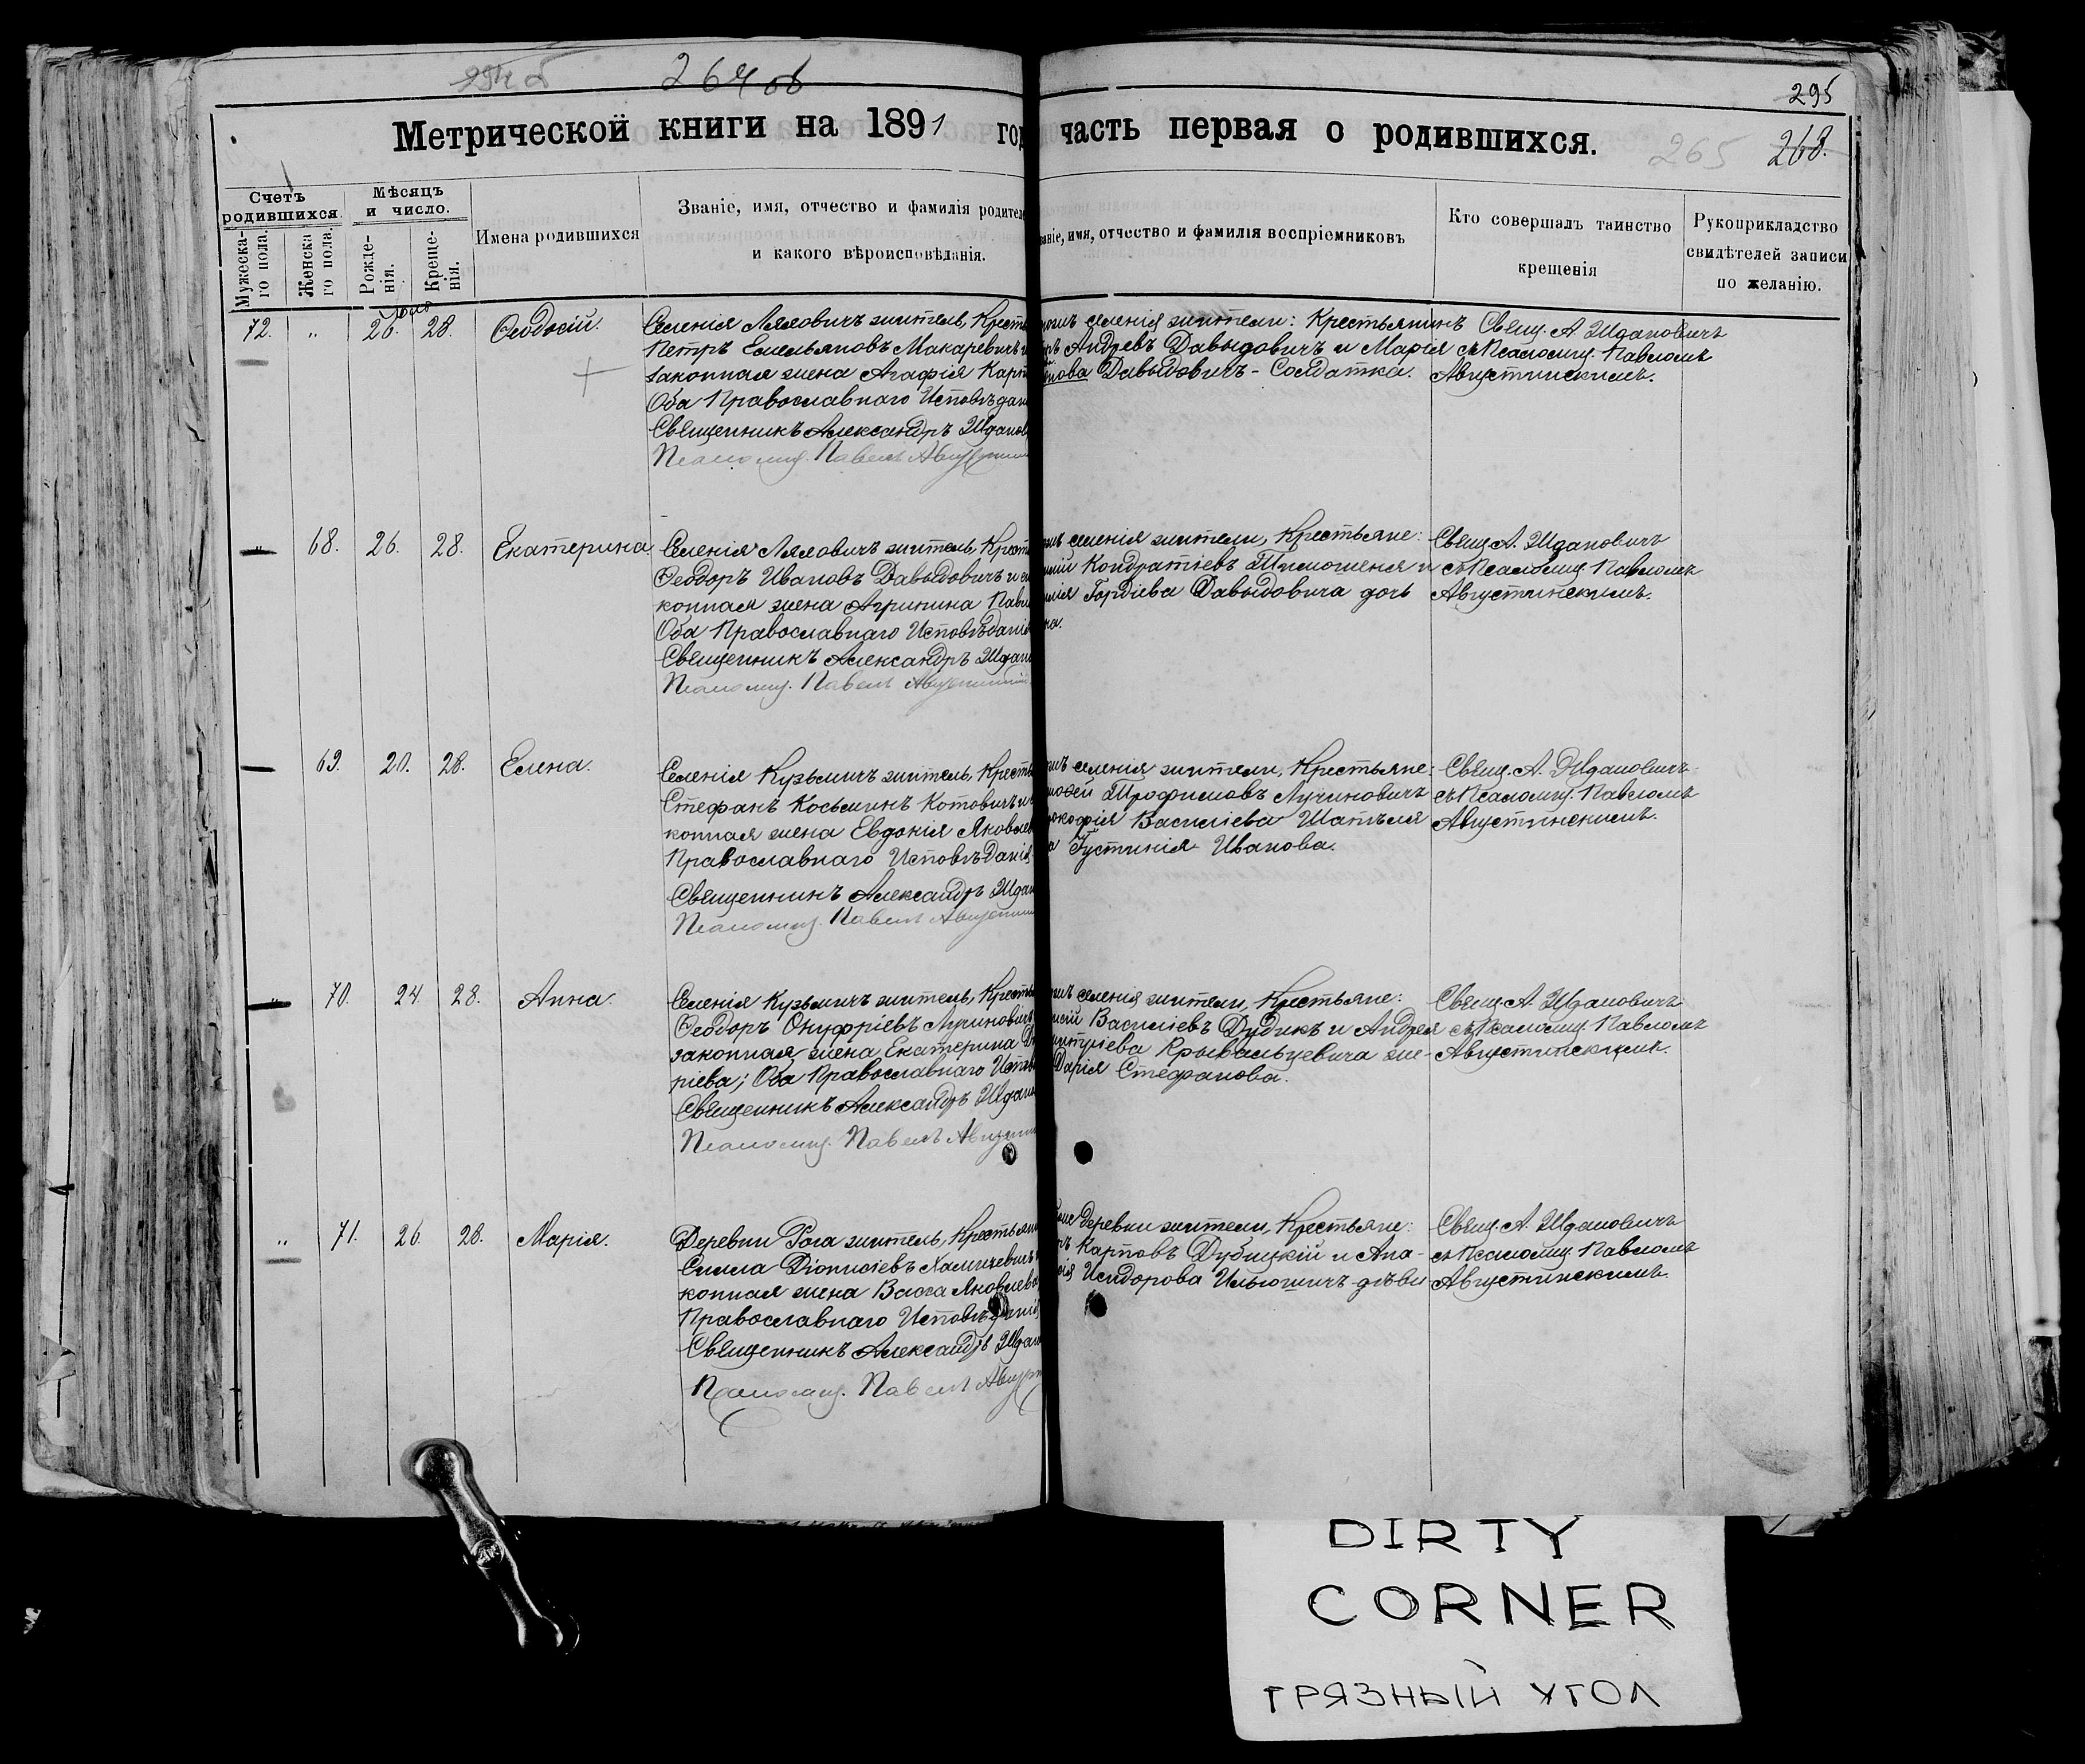 264 об
295
Метрической книги на 1891 год часть первая о родившихся.
265
268.
Счетъ родившихся.
Мужеска-го пола.
Женска го пола.
Мѣсяцъ и число.
Рожде-нія.
Креще-нія.
Имена родившихся
Званіе, имя, отчество и фамилія родителе
и какого вѣроисповѣданія.
аніе, имя, отчество и фамилія воспріемниковъ
Кто совершалъ таинство
крещенія
Рукоприкладство
свидѣтелей записи
по желанію.
72. " 26. 28. Ѳеодосій.
Селенія Ляховичъ житель, Крест
Петръ Емельяновъ Макаревичъ и
законная жена Агафія Карп
Оба Православнаго Исповѣдан
Священникъ Александръ Жданов
Псаломщ. Павелъ Августин
селенія жители: Крестьянинъ
Андреевъ Давыдовичъ и Марія
нова Давыдовичъ - Солдатка.
Свящ. А. Ждановичъ
съ Псаломщ. Павломъ
Августинскимъ.
" 68. 26. 28. Екатерина
Селенія Ляховичъ житель, Крест
Ѳеодоръ Ивановъ Давыдовичъ и
конная жена Агрипина Павл
Оба Православнаго Исповѣданія
Священникъ Александръ Ждан
Псаломщ. Павелъ Августинскій
селенія жители, Крестьяне:
Кондратіевъ Тимошеня и
Гордіева Давыдовича дочь
на.
Свящ. А. Ждановичъ
съ Псаломщ. Павломъ
Августинскимъ.
69. 20. 28. Елена.
Селенія Кузьмичъ житель, Кресть
Стефанъ Косьминъ Котовичъ и
конная жена Евдокія Яковлев
Православнаго Исповѣданія
Священникъ Александръ Ждан
Псаломщ. Павелъ Августин
селенія жители, Крестьяне:
Трофимовъ Лучиновичъ
рокофія Василіева Шапѣля
а Густинія Иванова.
Свящ. А. Ждановичъ
съ Псаломщ. Павломъ
Августинскимъ.
" 70. 24. 28. Анна.
Селенія Кузьмичъ житель, Кресть
Ѳеодоръ Онуфріевъ Лучинович
законная жена Екатерина
ріева; Оба Православнаго Испов
Священникъ Александръ Ждано
Псаломщ. Павелъ Августин
селенія жители, Крестьяне:
Василіевъ Дудикъ и Андрея
Крывальцевича же-
Дарія Стефанова.
Свящ. А. Ждановичъ
съ Псаломщ. Павломъ
Августинскимъ.
" 71. 26. 28. Марія.
Деревни Рога житель, Крестьян
Сила Діонисіевъ Халицевичъ
конная жена Васса Яковлева
Православнаго Исповѣданія
Священникъ Александръ Ждан
Псаломщ. Павелъ Августин
деревни жители, Крестьяне:
Карповъ Дубицкій и Ана-
Исидорова Ильюшичъ дѣви
Свящ. А. Ждановичъ
съ Псаломщ. Павломъ
Августинскимъ.
DIRTY
CORNER
ГРЯЗНЫЙ УГОЛ